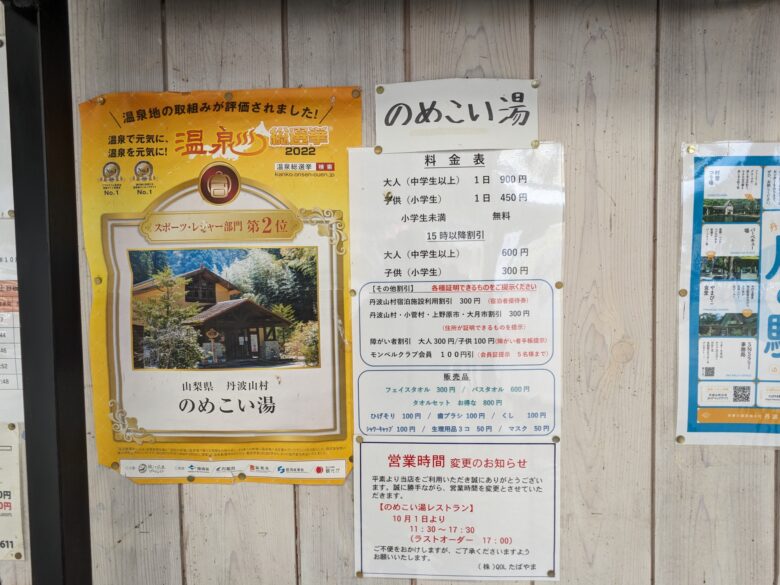 温泉地の取組みが評価されました!
温泉で元気に、
温泉を元気に!
温泉総選挙
2022
温泉総選挙 検索
No.1
No.1
スポーツ・レジャー部門 第2位
山梨県 丹波山村
のめこい湯
のめこい湯
料金表
大人(中学生以上) 1日 900円
子供(小学生) 1日 450円
小学生未満 無料
15時以降割引
大人(中学生以上) 600円
子供(小学生) 300円
【その他割引】 各種証明できるものをご提示ください
丹波山村宿泊施設利用割引 300円(宿泊者優待券)
丹波山村・小菅村・上野原市・大月市割引 300円
(住所が証明できるものを提示)
障がい者割引 大人300円/子供100円(障がい者手帳提示)
モンベルクラブ会員 100円引(会員証提示 5名様まで)
販売品
フェイスタオル 300円 / バスタオル 600円
タオルセット お得な 800円
ひげそり 100円 / 歯ブラシ 100円 / くし 100円
シャワーキャップ 100円 / 生理用品3コ 50円 / マスク 50円
営業時間 変更のお知らせ
平素より当店をご利用いただき誠にありがとうござい
ます。誠に勝手ながら、営業時間を変更とさせていた
だきます。
【のめこい湯レストラン】
10月1日より
11:30~17:30
(ラストオーダー 17:00)
ご不便をおかけしますが、ご了承くださいますよう
お願いいたします。
(株)QOLたばやま